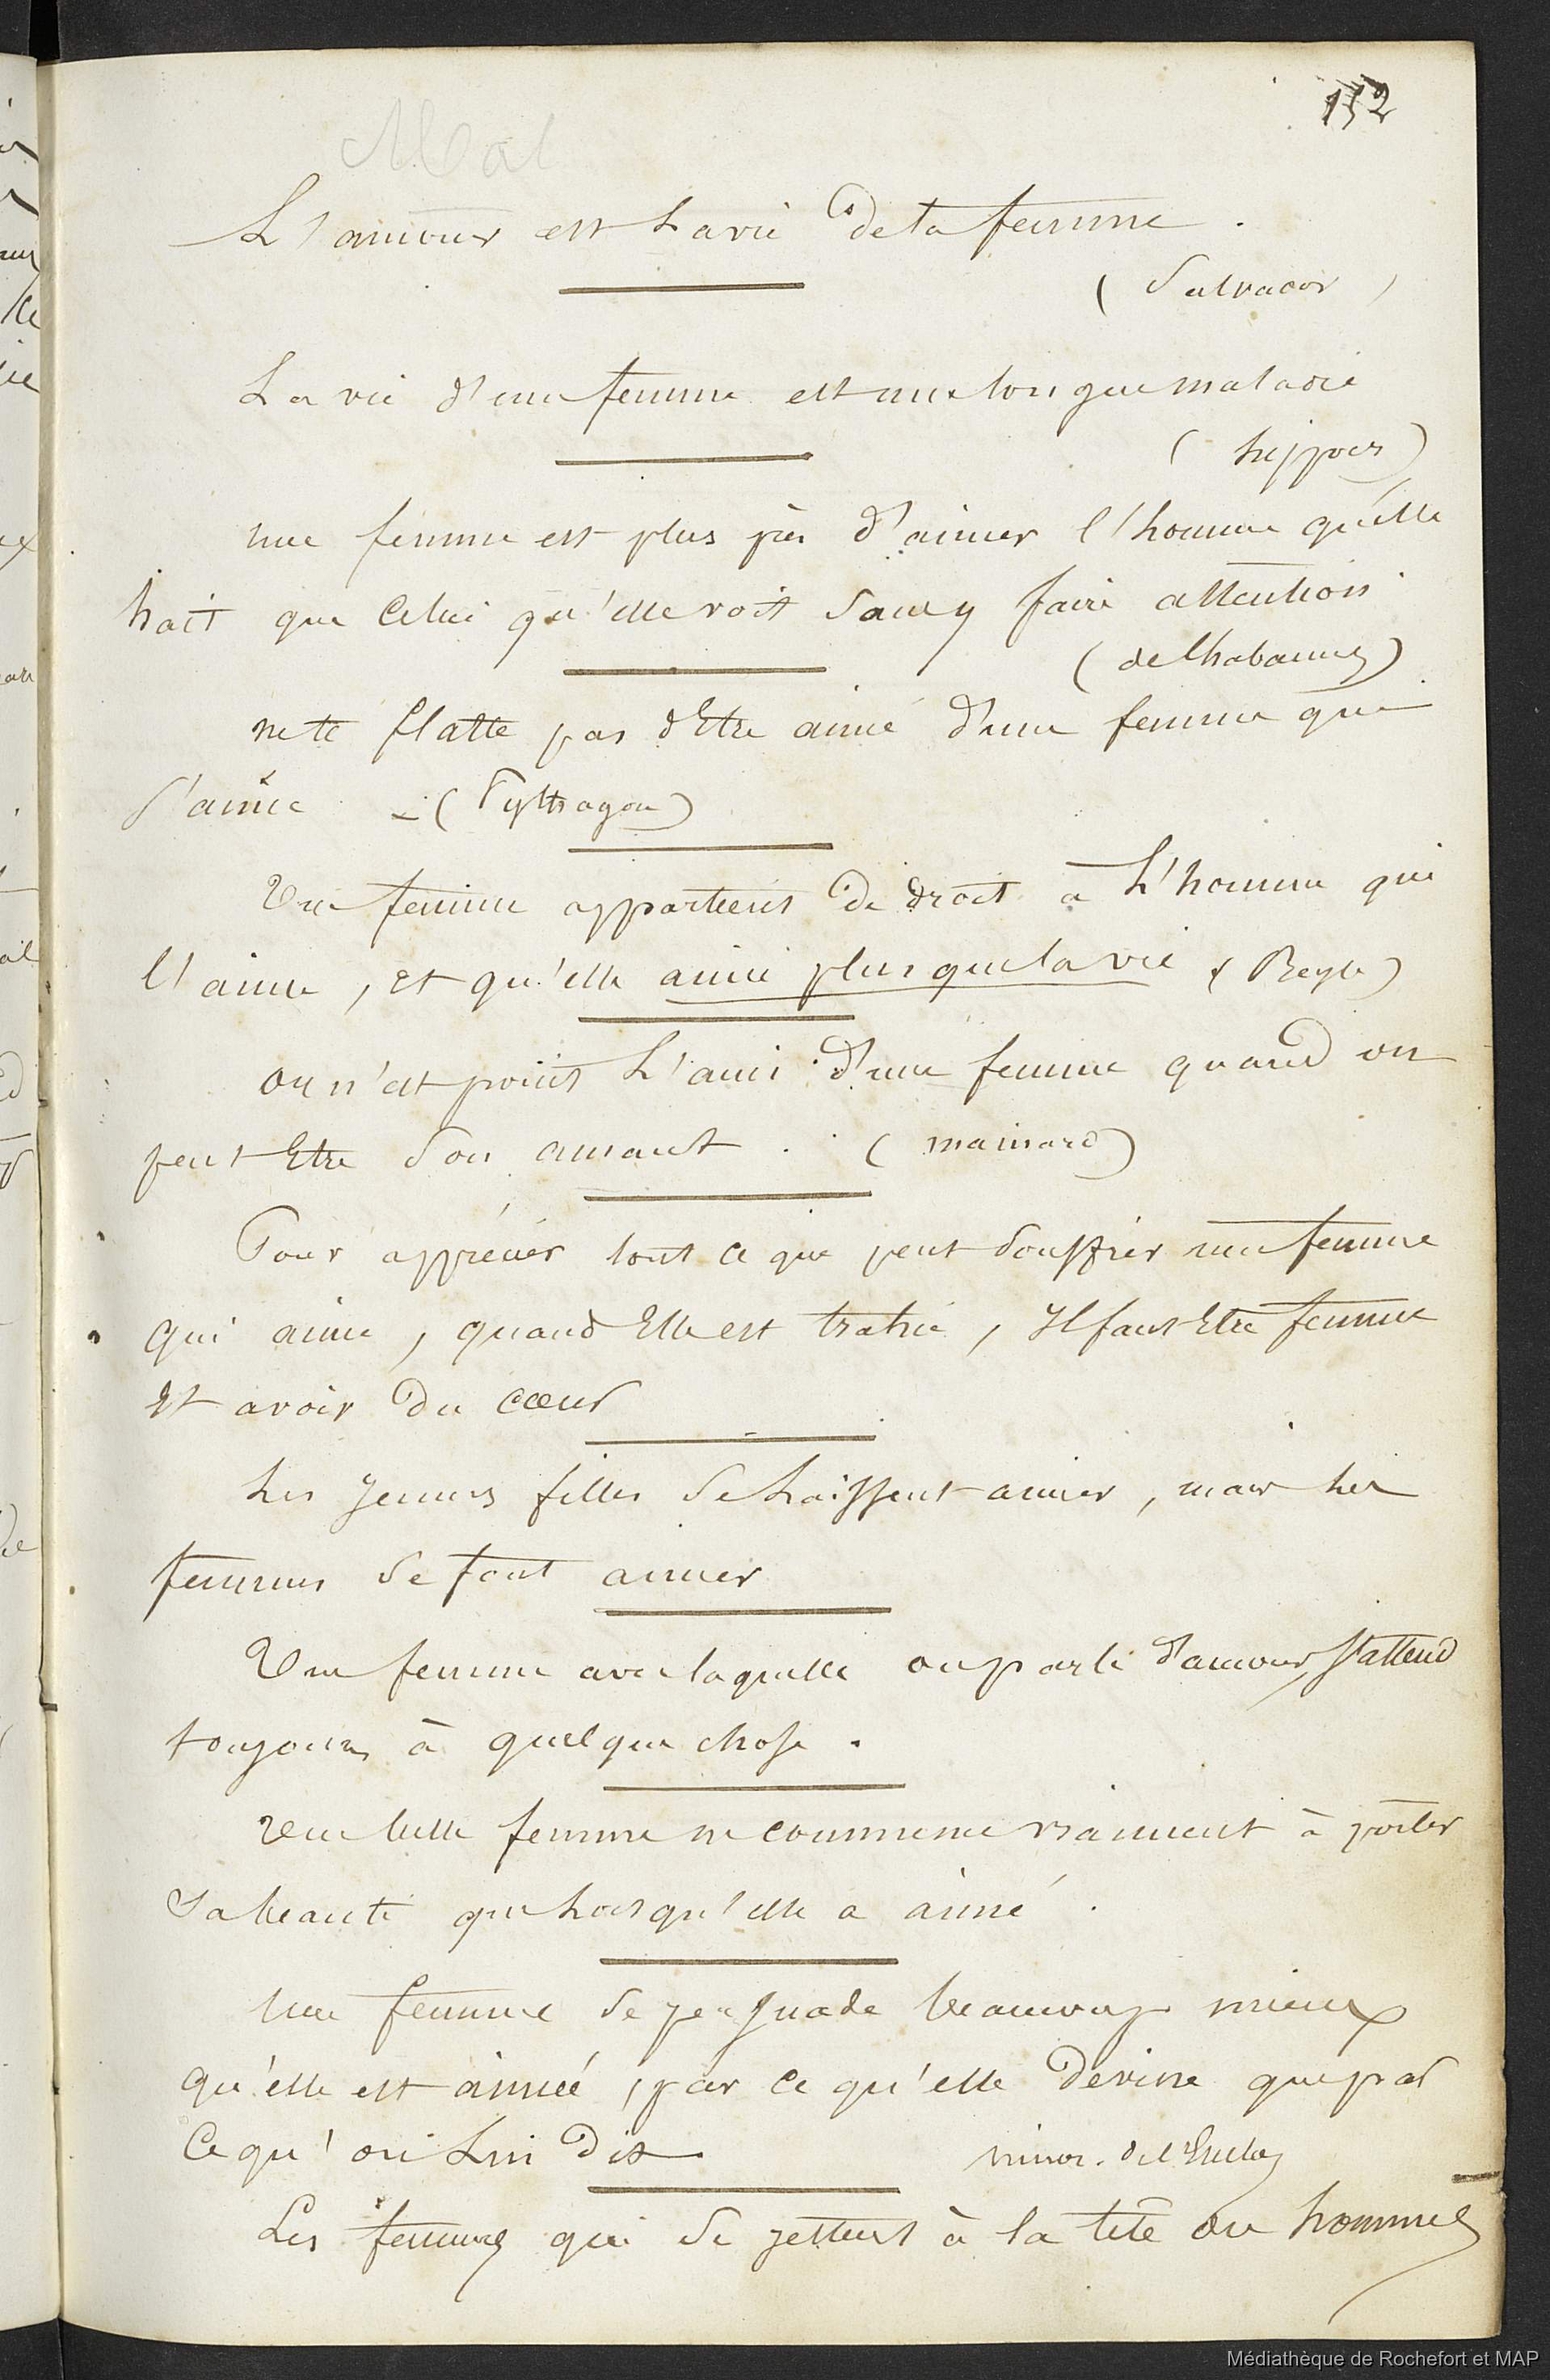 152
Mal
L'amour est La vie de la femme.
(Salvador)
La vie d'une femme est une longue maladie
(hippocr)
une femme est plus près d'aimer l'homme qu'elle
hait que celui qu'elle voit sans y faire attention
(de Chabannes)
ne te flatte pas d'Etre aimé d'une femme qui
s'aime - (Pythagore)
Une femme appartient de droit à L'homme qui
l'aime, et qu'elle aime plus que la vie (Beyle)
on n'est point L'ami d'une femme quand on
peut Etre son amant. (mainard)
Pour apprécier tout ce que peut souffrir une femme
qui aime, quand Elle est trahie, Il faut Etre femme
Et avoir du cœur
Les jeunes filles se Laissent aimer, mais Les
femmes se font aimer
Une femme avec laquelle on parle d'amour, s'attend
toujours à quelque chose.
Une belle femme ne commence vraiment à porter
sa beauté que Lorsqu'elle a aimé.
Une femme se persuade beaucoup mieux
qu'elle est aimée, par ce qu'elle devine que par
Ce qu'on Lui dit. ninon. de l'Enclos
Les femmes qui se jettent à la tête des hommes
Médiathèque de Rochefort et MAP